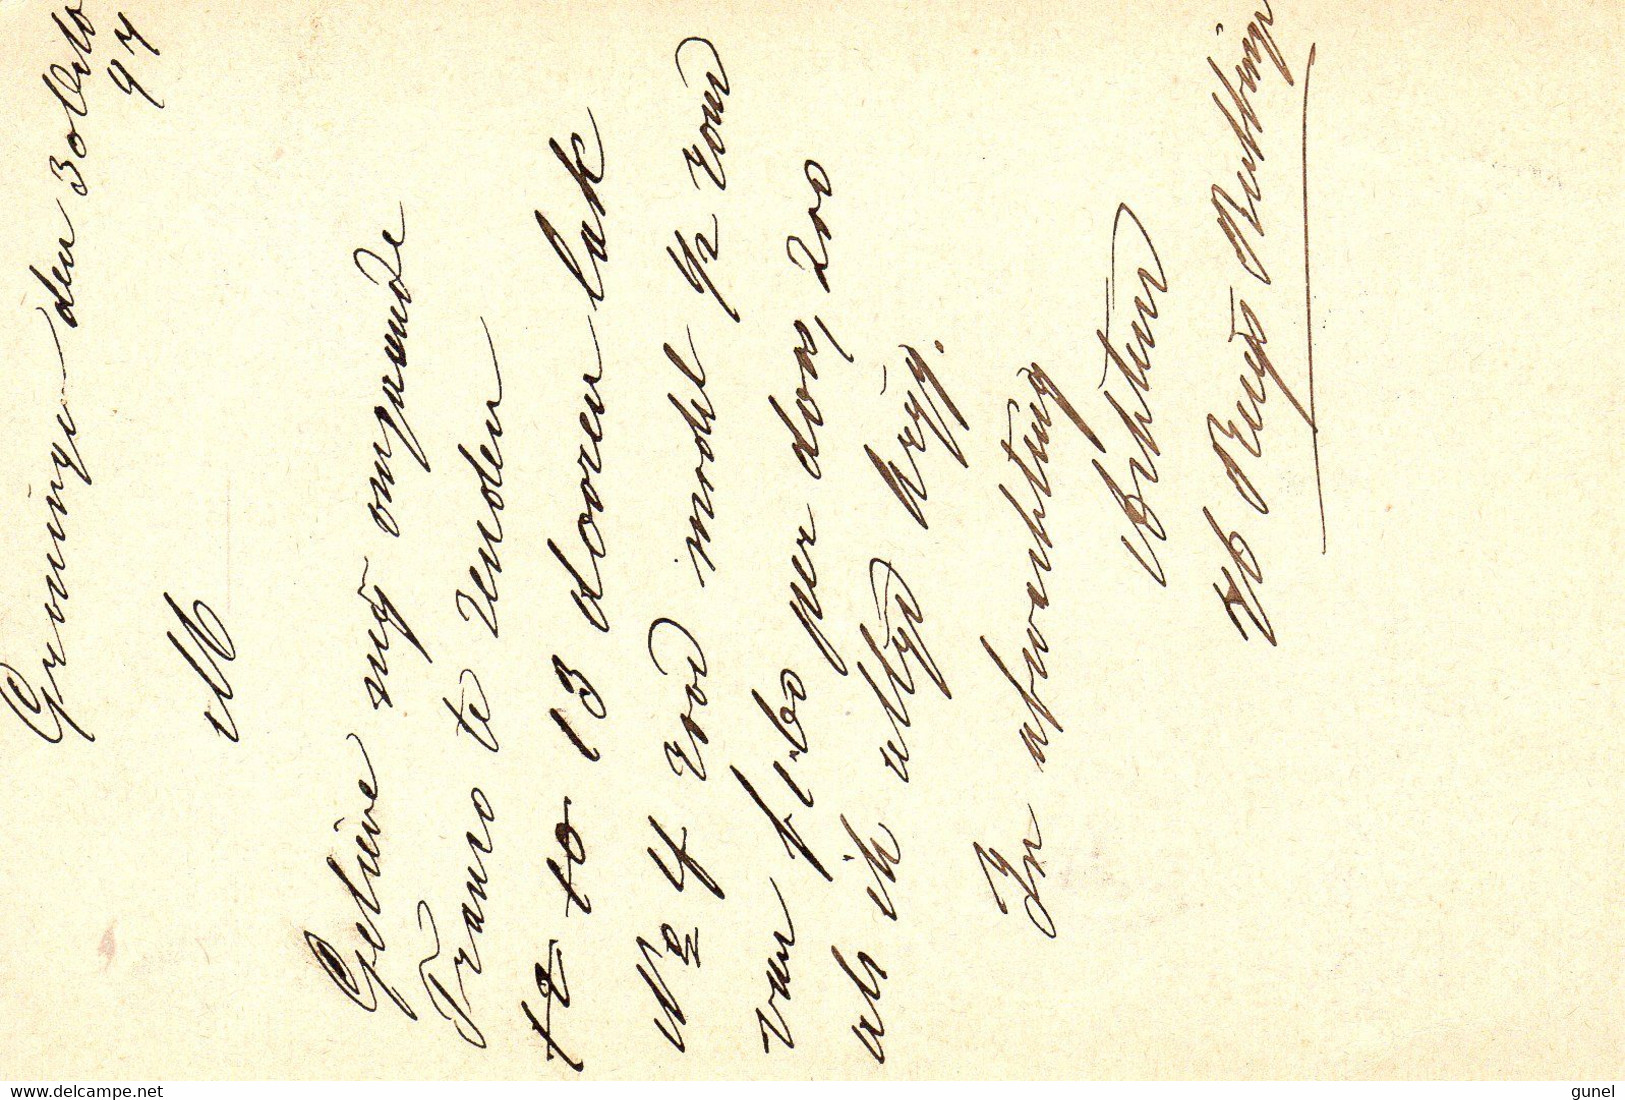 Groningen den 30 Octb
97
M
Gelieve mij omgaande
Franco te zenden
12 10 13 doozen lak
No 4 rood model 1/2 rond
van f 1.60 per doos, zoo
als ik altijd krijg.
In afwachting
Achtend
delcampe.net
gunel